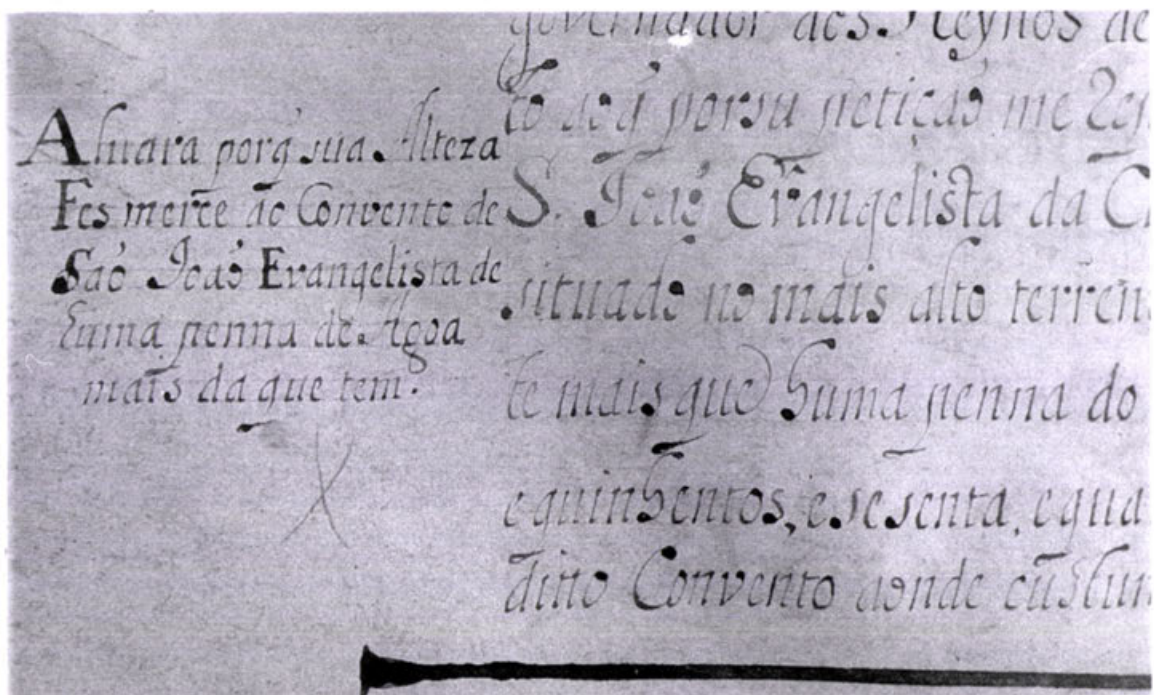 Aluara porq̃ sua Alteza
Fes merce ao Convento de
São João Evangelista de
huma penna de Agoa
mais da que tem.
governador dos Reynos de
to do q̃ por su petição me
S. João Evangelista da
situado no mais alto terren
te mais que huma penna do
e quinhentos, e sesenta, e qua
ditto Convento aonde custum